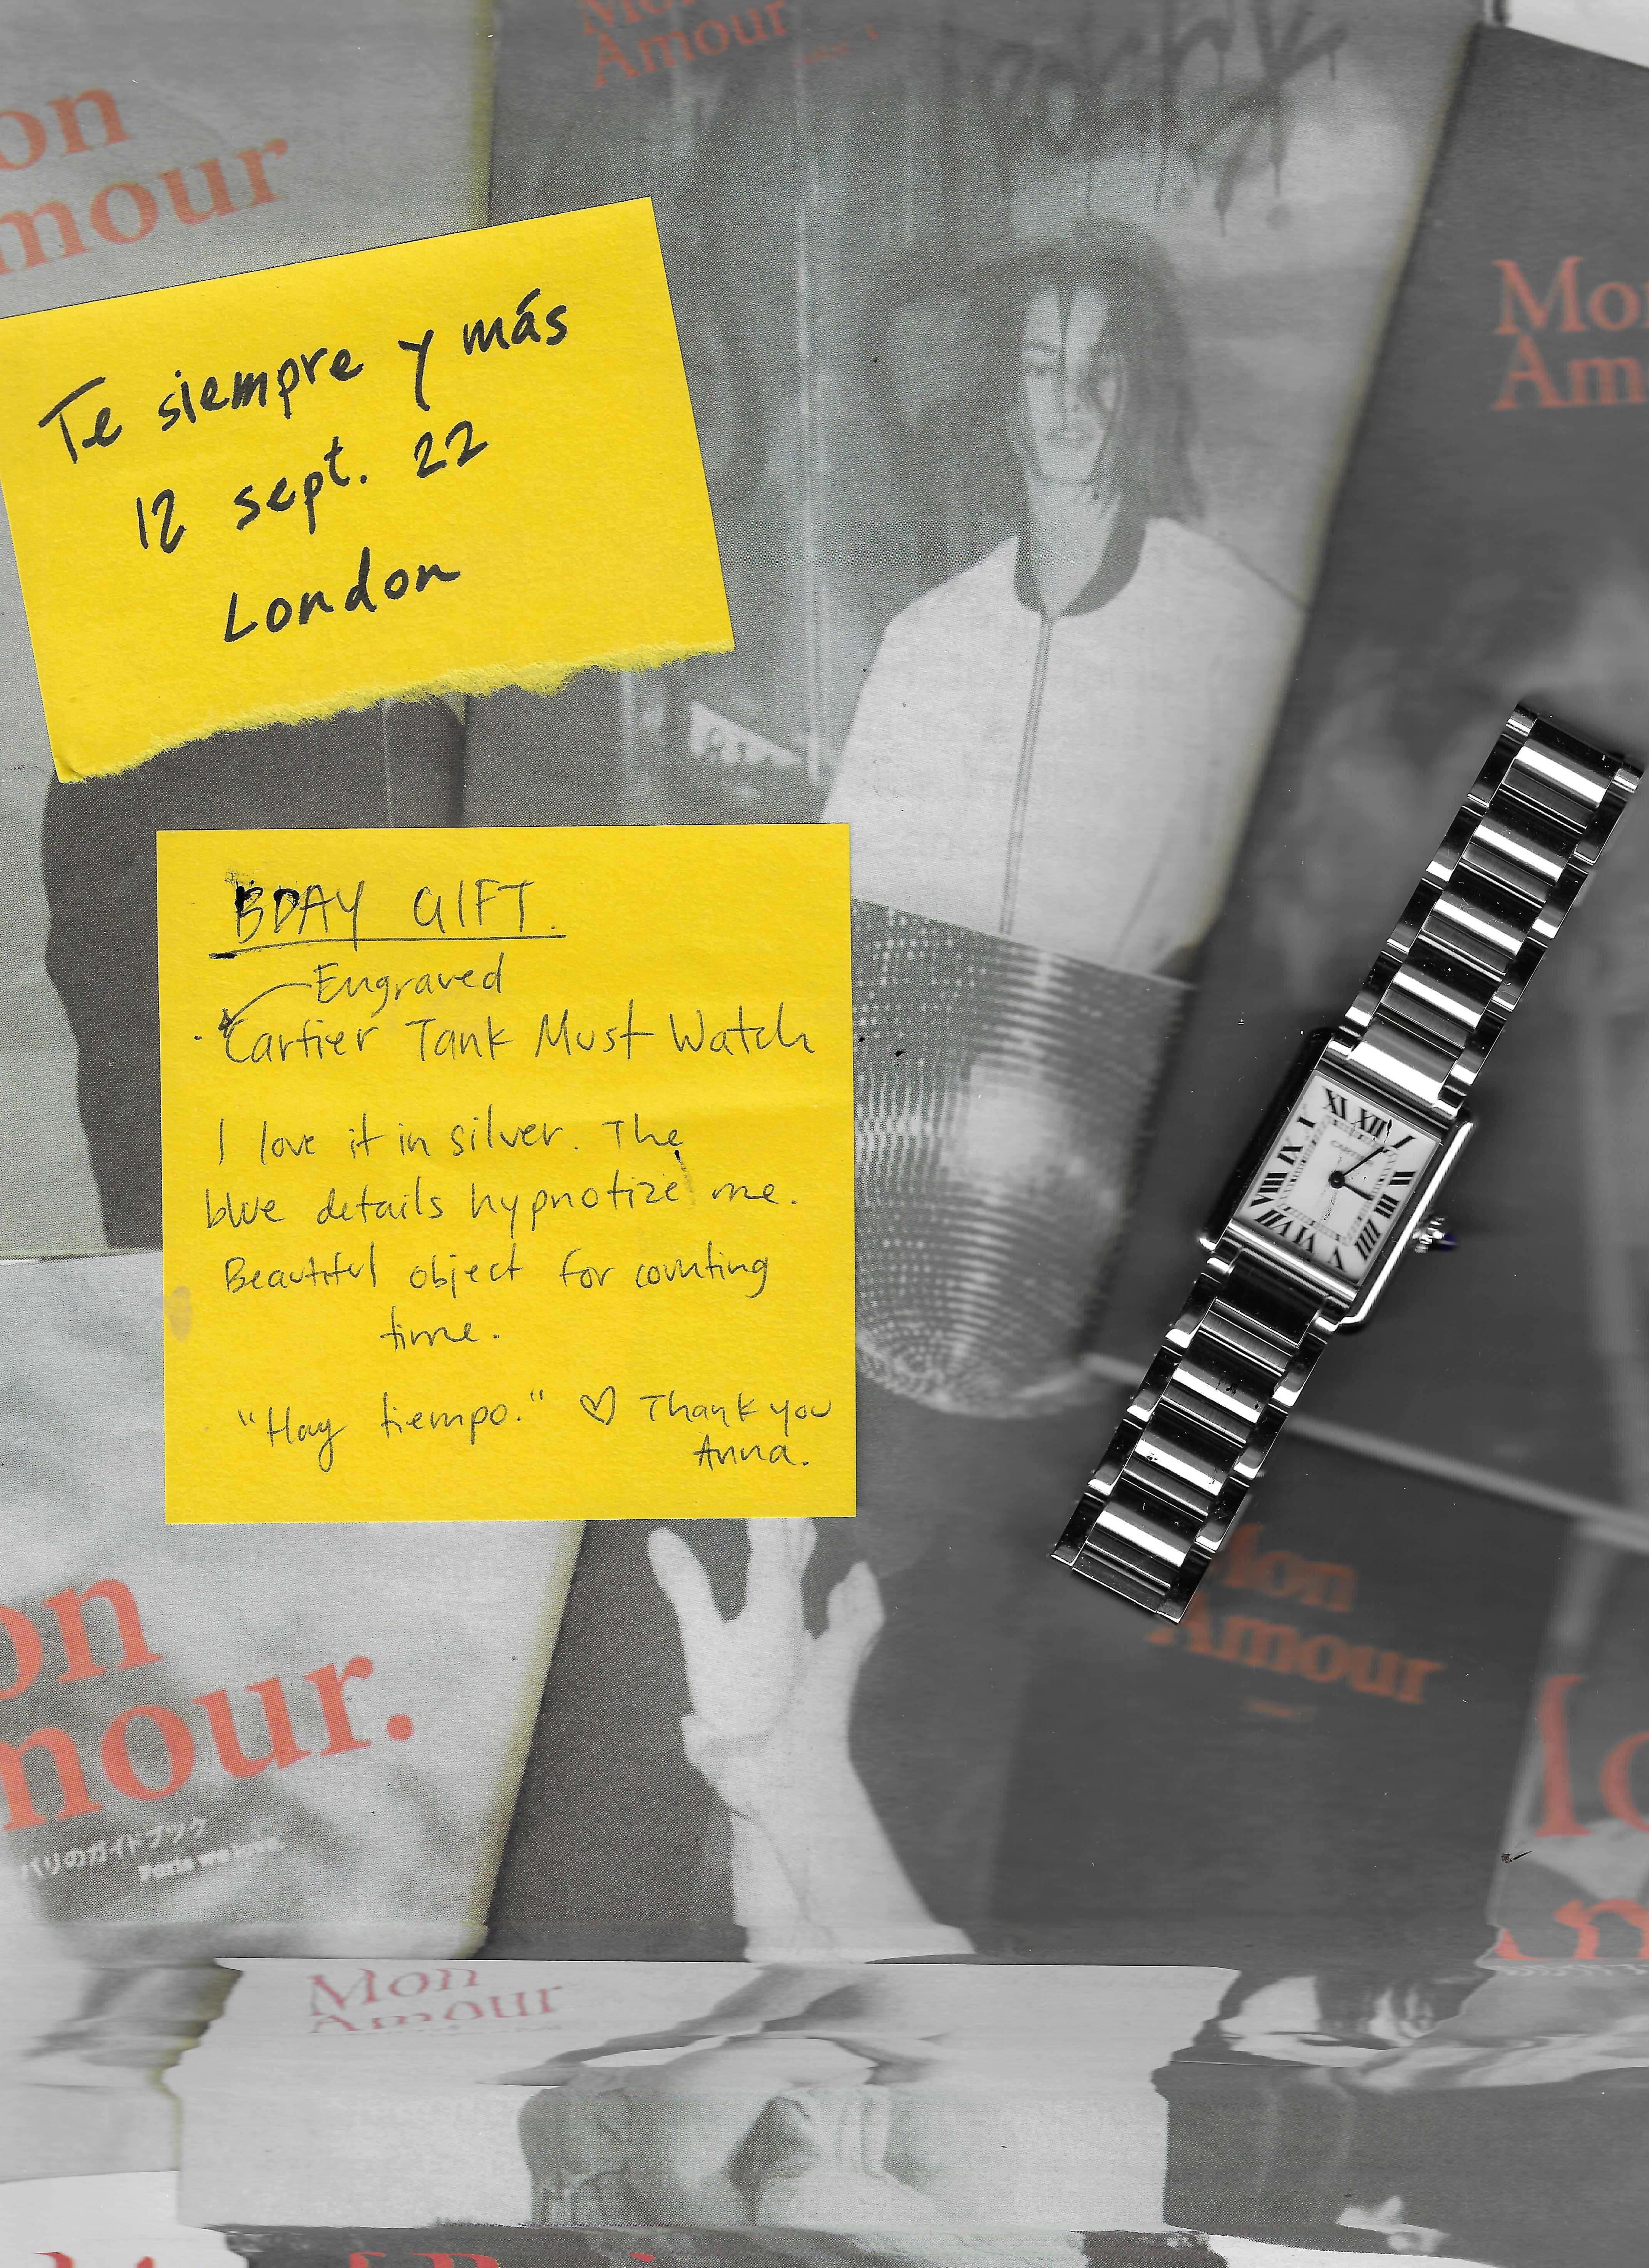 Mon
Amour
on
mour
Mon
Am
Te siempre y más
12 sept. 22
London
BDAY GIFT.
Engraved
· Cartier Tank Must Watch
I love it in silver. The
blue details hypnotize me.
Beautiful object for counting
time.
"Hay tiempo." ♡ Thank you
Anna.
XI XII I
II
III
IIII
V
VI
VII
VIII
IX
CARTIER
Mon
Amour
on
mour.
パリのガイドブック
Paris we love.
Mon
Amour